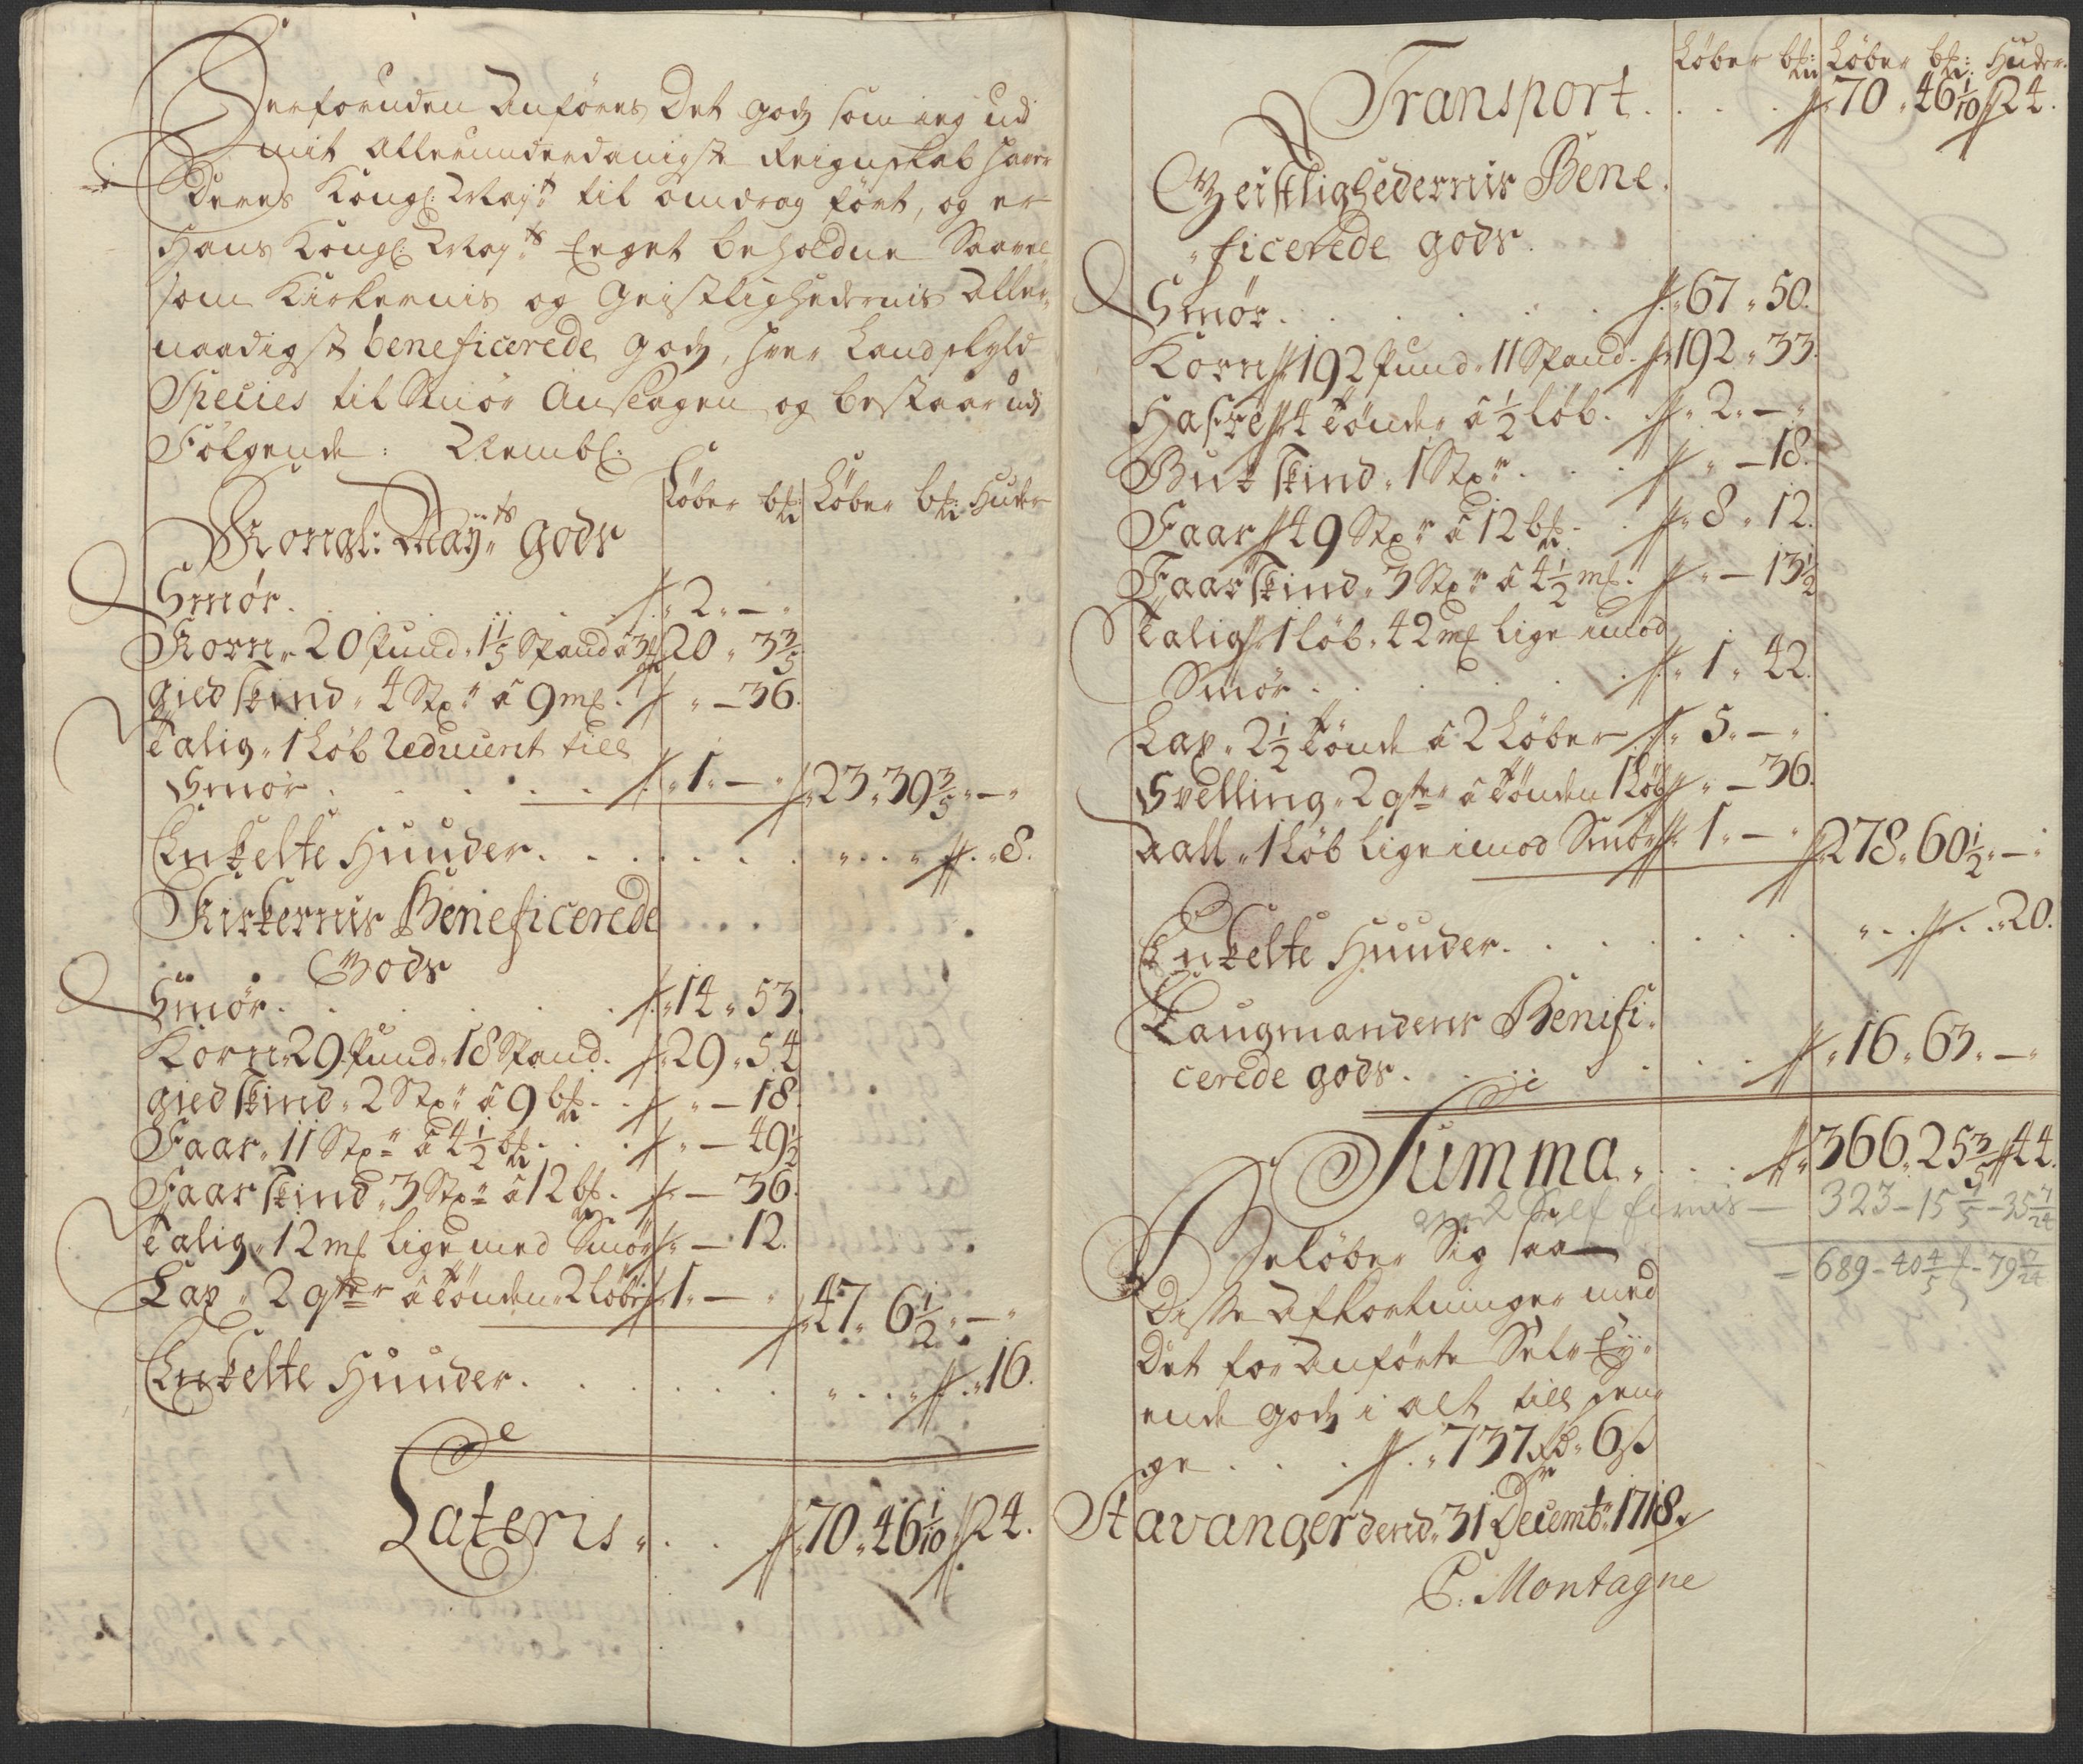 Derforuden Anföres Det godz som ieg udi
mit allerunderdanigste Reignskab haver
Deres Kongl: May:ts til omdrag fört, og er
Hans Kongl: May:ts Eeget beholdne Saavel
som Kirkernis og Geistlighedernis Aller-
naadigst beneficerede godz, hver Landskyld
Species til Smör Anslagen og bestaar udi
Fölgende: Nembl.
Løber bp: Løber bp: Huder
Kongl: May:ts gods
Smør . . . 2 " —
Korn " 20 Pund " 1 1/5 Spand à 3 bp 20 " 3 3/5
giedskind " 4 Stkr à 9 mk . " — 36.
Talig " 1 Løb Reduceret till
Smør . . . " 1 " — " 23 " 39 3/5 " — "
Enkelte Huuder . . . " 8.
Kirkernis Beneficerede
Gods
Smør . . . " 14 " 53.
Korn " 29 Pund " 18 Spand . " 29 " 54
giedskind " 2 Stkr à 9 bp . . " — 18.
Faar " 11 Stkr à 4 1/2 bp . . . " — 49 1/2
Faarskind " 3 Stkr à 12 bp . " — 36.
Talig " 12 mk lige med Smør " — 12.
Lax " 2 qter à Tønden 2 Løber " 1 " — " 47 " 6 1/2 " — "
Enkelte Huuder . . . " 16.
Lateris " . . . 70 " 46 1/10 " 24.
Løber bp: Løber bp: Huder.
Transport . . . 70 " 46 1/10 " 24.
Geistlighedernis Bene-
ficerede gods.
Smør . . . " 67 " 50.
Korn " 192 Pund " 11 Spand . " 192 " 33.
Hafre " 4 Tønder à 1/2 Løb . " 2 " — "
Bukskind " 1 Stkr . . . " — 18.
Faar " 49 Stkr à 12 bp . . " 8 " 12.
Faarskind " 3 Stkr à 4 1/2 mk . " — 13 1/2
Talig " 1 Løb " 42 mk lige imod
Smør . . . " 1 " 42.
Lax " 2 1/2 Tønde à 2 Løber " 5 " — "
Svelling " 2 qter à Tønden 1 Løb " — 36.
Aall " 1 Løb lige imod Smør " 1 " — " 278 " 60 1/2 " — "
Enkelte Huuder . . . " 20.
Laugmandens Benifi-
cerede gods . . . " 16 " 63 " — "
Summa " . . . 366 " 25 3/5 " 44.
323 — 15 1/5 — 35 7/24
= 689 — 40 4/5 — 79 7/24
Beløber Sig saa
Disse Afkortninger med
Det for Anförte Selv Ey-
ende godz i alt till pen-
ge . . . " 737 rd " 6 ß
Stavanger dend " 31 Decembr 1718
C: Montagne